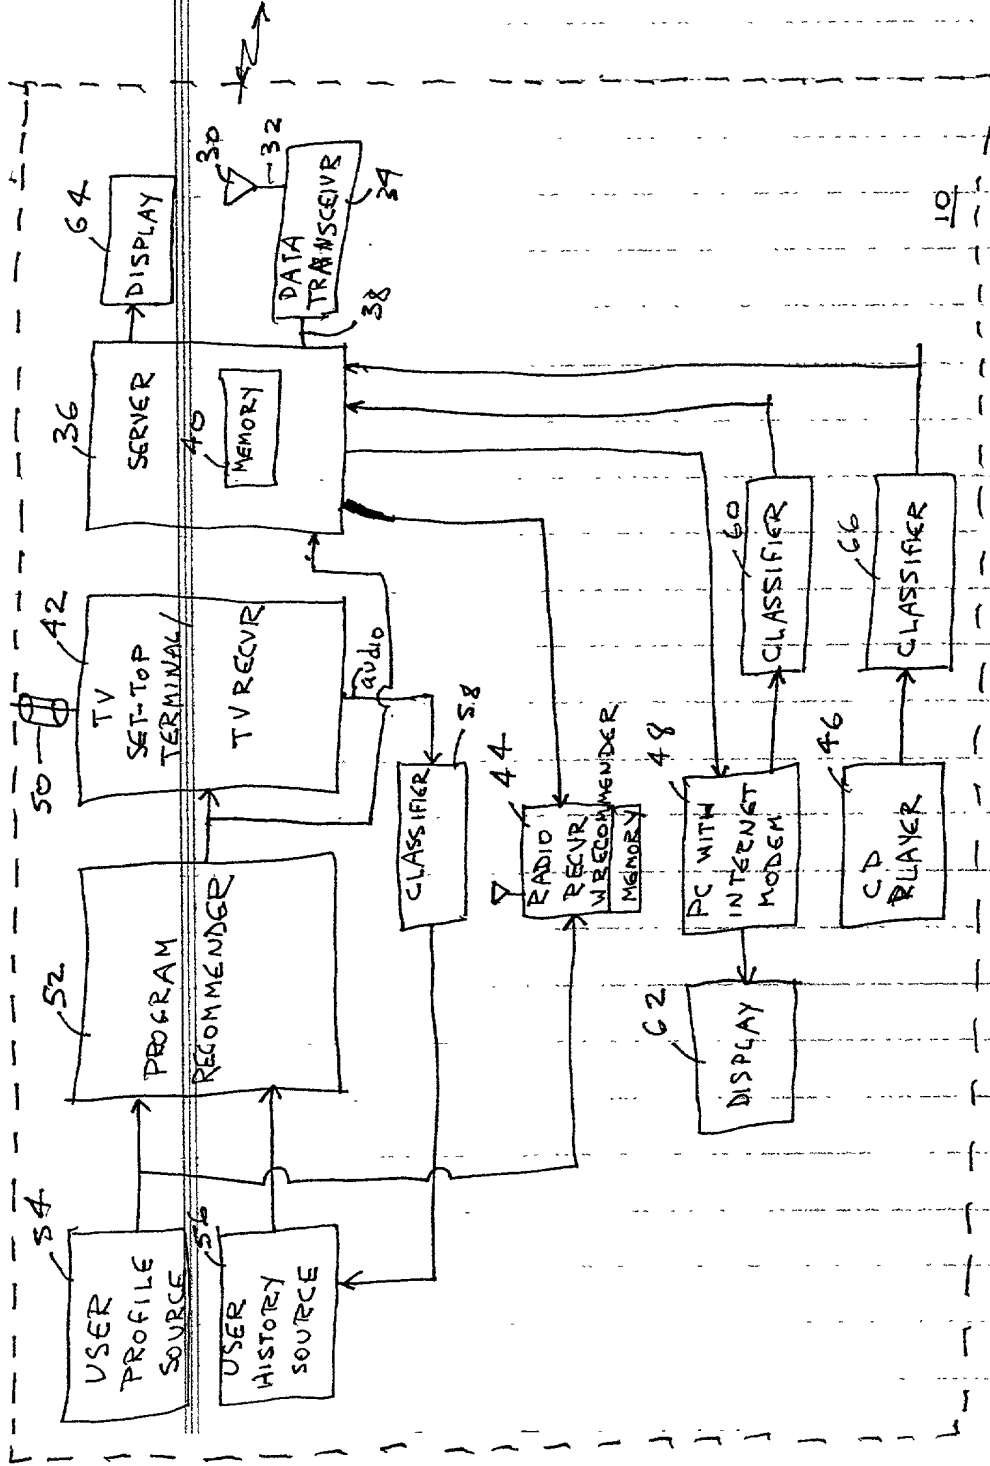 54
USER
PROFILE
SOURCE
56
USER
HISTORY
SOURCE
52
PROGRAM
RECOMMENDER
50
42
TV
SET-TOP
TERMINAL/
TV RECVR
audio
36
SERVER
40
MEMORY
64
DISPLAY
30
32
DATA
TRANSCEIVR
34
38
CLASSIFIER
58
44
RADIO
RECVR
W RECOMMENDER
MEMORY
48
PC WITH
INTERNET
MODEM
62
DISPLAY
60
CLASSIFIER
46
CD
PLAYER
66
CLASSIFIER
10